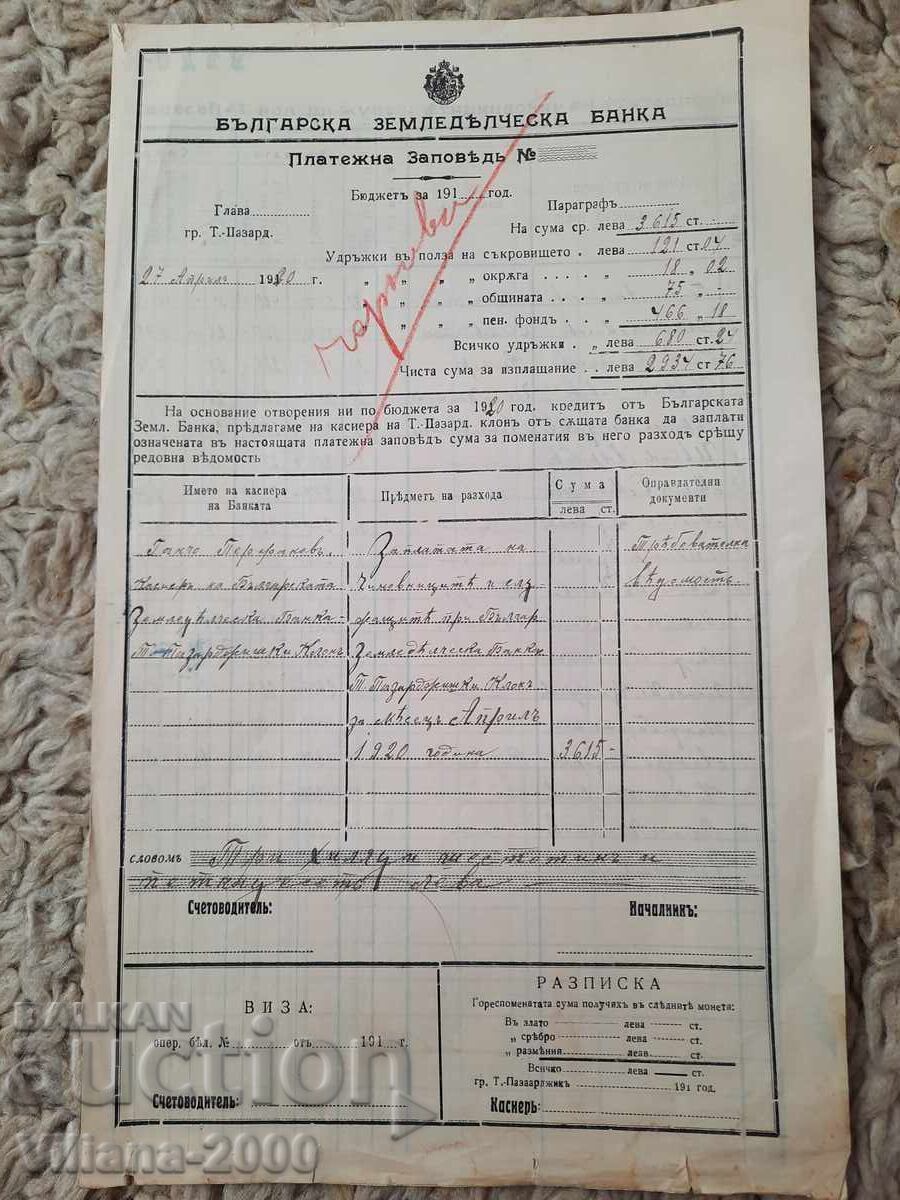 БЪЛГАРСКА ЗЕМЛЕДѢЛЧЕСКА БАНКА
ПЛАТЕЖНА ЗАПОВѢДЬ №
Бюджетъ за 191 год.
Глава
Параграфъ
гр. Т.-Пазард.
На сума ср. лева 3615 ст.
Удръжки въ полза на съкровището . лева 121 ст. 04
27 Априлъ 1920 г.
„ „ „ „ окрѫга . . . . „ 18 „ 02
„ „ „ „ общината . . . . „ 75 „ -
„ „ „ „ пен. фондъ . . „ 466 „ 18
Всичко удръжки . „ лева 680 ст. 24
Чиста сума за изплащание . . лева 2934 ст 76
чернова
На основание отворения ни по бюджета за 1920 год. кредитъ отъ Българската
Земл. Банка, предлагаме на касиера на Т.-Пазард. клонъ отъ сѫщата банка да заплати
означената въ настоящата платежна заповѣдъ сума за поменатия въ него разходъ срѣщу
редовна вѣдомость
Името на касиера на Банката
Прѣдметъ на разхода
Сума
лева ст.
Оправдателни документи
Ганчо
Заплатата на
Трѣбователна
Касиеръ на Българската
Чиновницитѣ и слу
Вѣдомость
Земледѣлческа Банка-
жащитѣ при Българ
Т-Пазарджишки Клонъ
Земледѣлческа Банка
Т. Пазарджишки Клонъ
за месецъ Априлъ
1920 година
3615 -
словомъ Три хиляди шестотинъ и
петнадесетъ лева
Счетоводитель:
Началникъ:
ВИЗА:
опер. бѣл. № отъ 191 г.
Счетоводитель:
РАЗПИСКА
Гореспоменатата сума получихъ въ слѣднитѣ монети:
Въ злато лева ст.
„ срѣбро лева ст.
„ размѣния левв ст.
Всичко лева ст.
гр. Т.-Пазаарджикъ 191 год.
Касиеръ:
BALKAN
auction
Viliana-2000